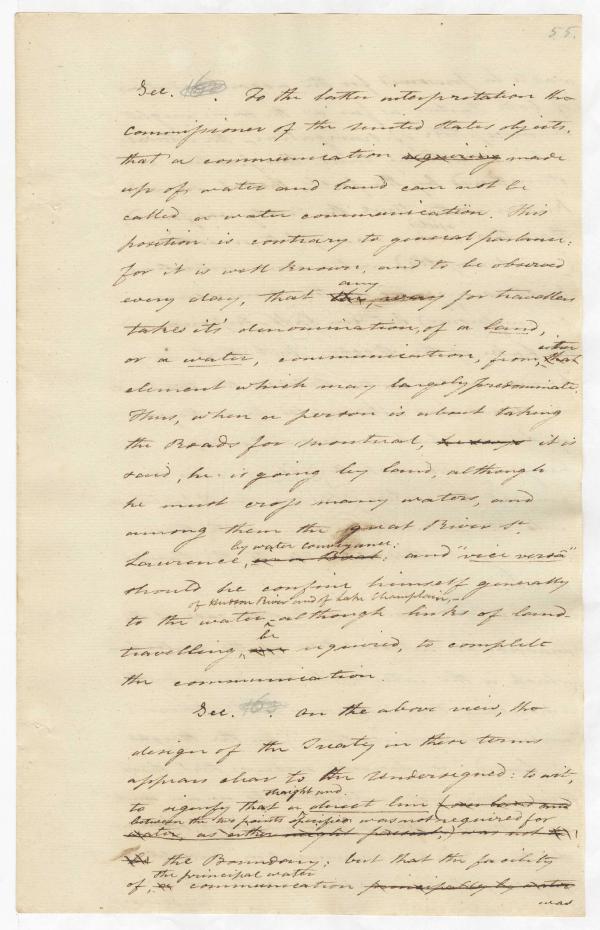 55.
Sec. 162. To the latter interpretation the
commissioner of the United States objects,
that a communication requiring made
up of water and land can not be
called a water communication. This
position is contrary to general parlance:
for it is well known, and to be observed
any
every day, that the way for travellers
takes it's denomination, of a land,
either
or a water, communication, from, that
element which may largely predominate.
Thus, when a person is about taking
the Roads for Montreal, he says it is
said, he is going by land, although
he must cross many waters, and
among them the great River St.
by water conveyance:
Lawrence, in a Boat; and "vice versâ"
should he confine himself generally
of Hudson River and of Lake Champlain,
to the water although links of land-
be
travelling, are required, to complete
the communication.
Sec. 163. On the above view, the
design of the Treaty in these terms
appears clear to the Undersigned: to wit,
straight and
to signify that a direct line (over land and
between the two points specified was not required for
water, as either might prevail,) was not
the Boundary; but that the facility
the principal water
of, communication principally by water
was